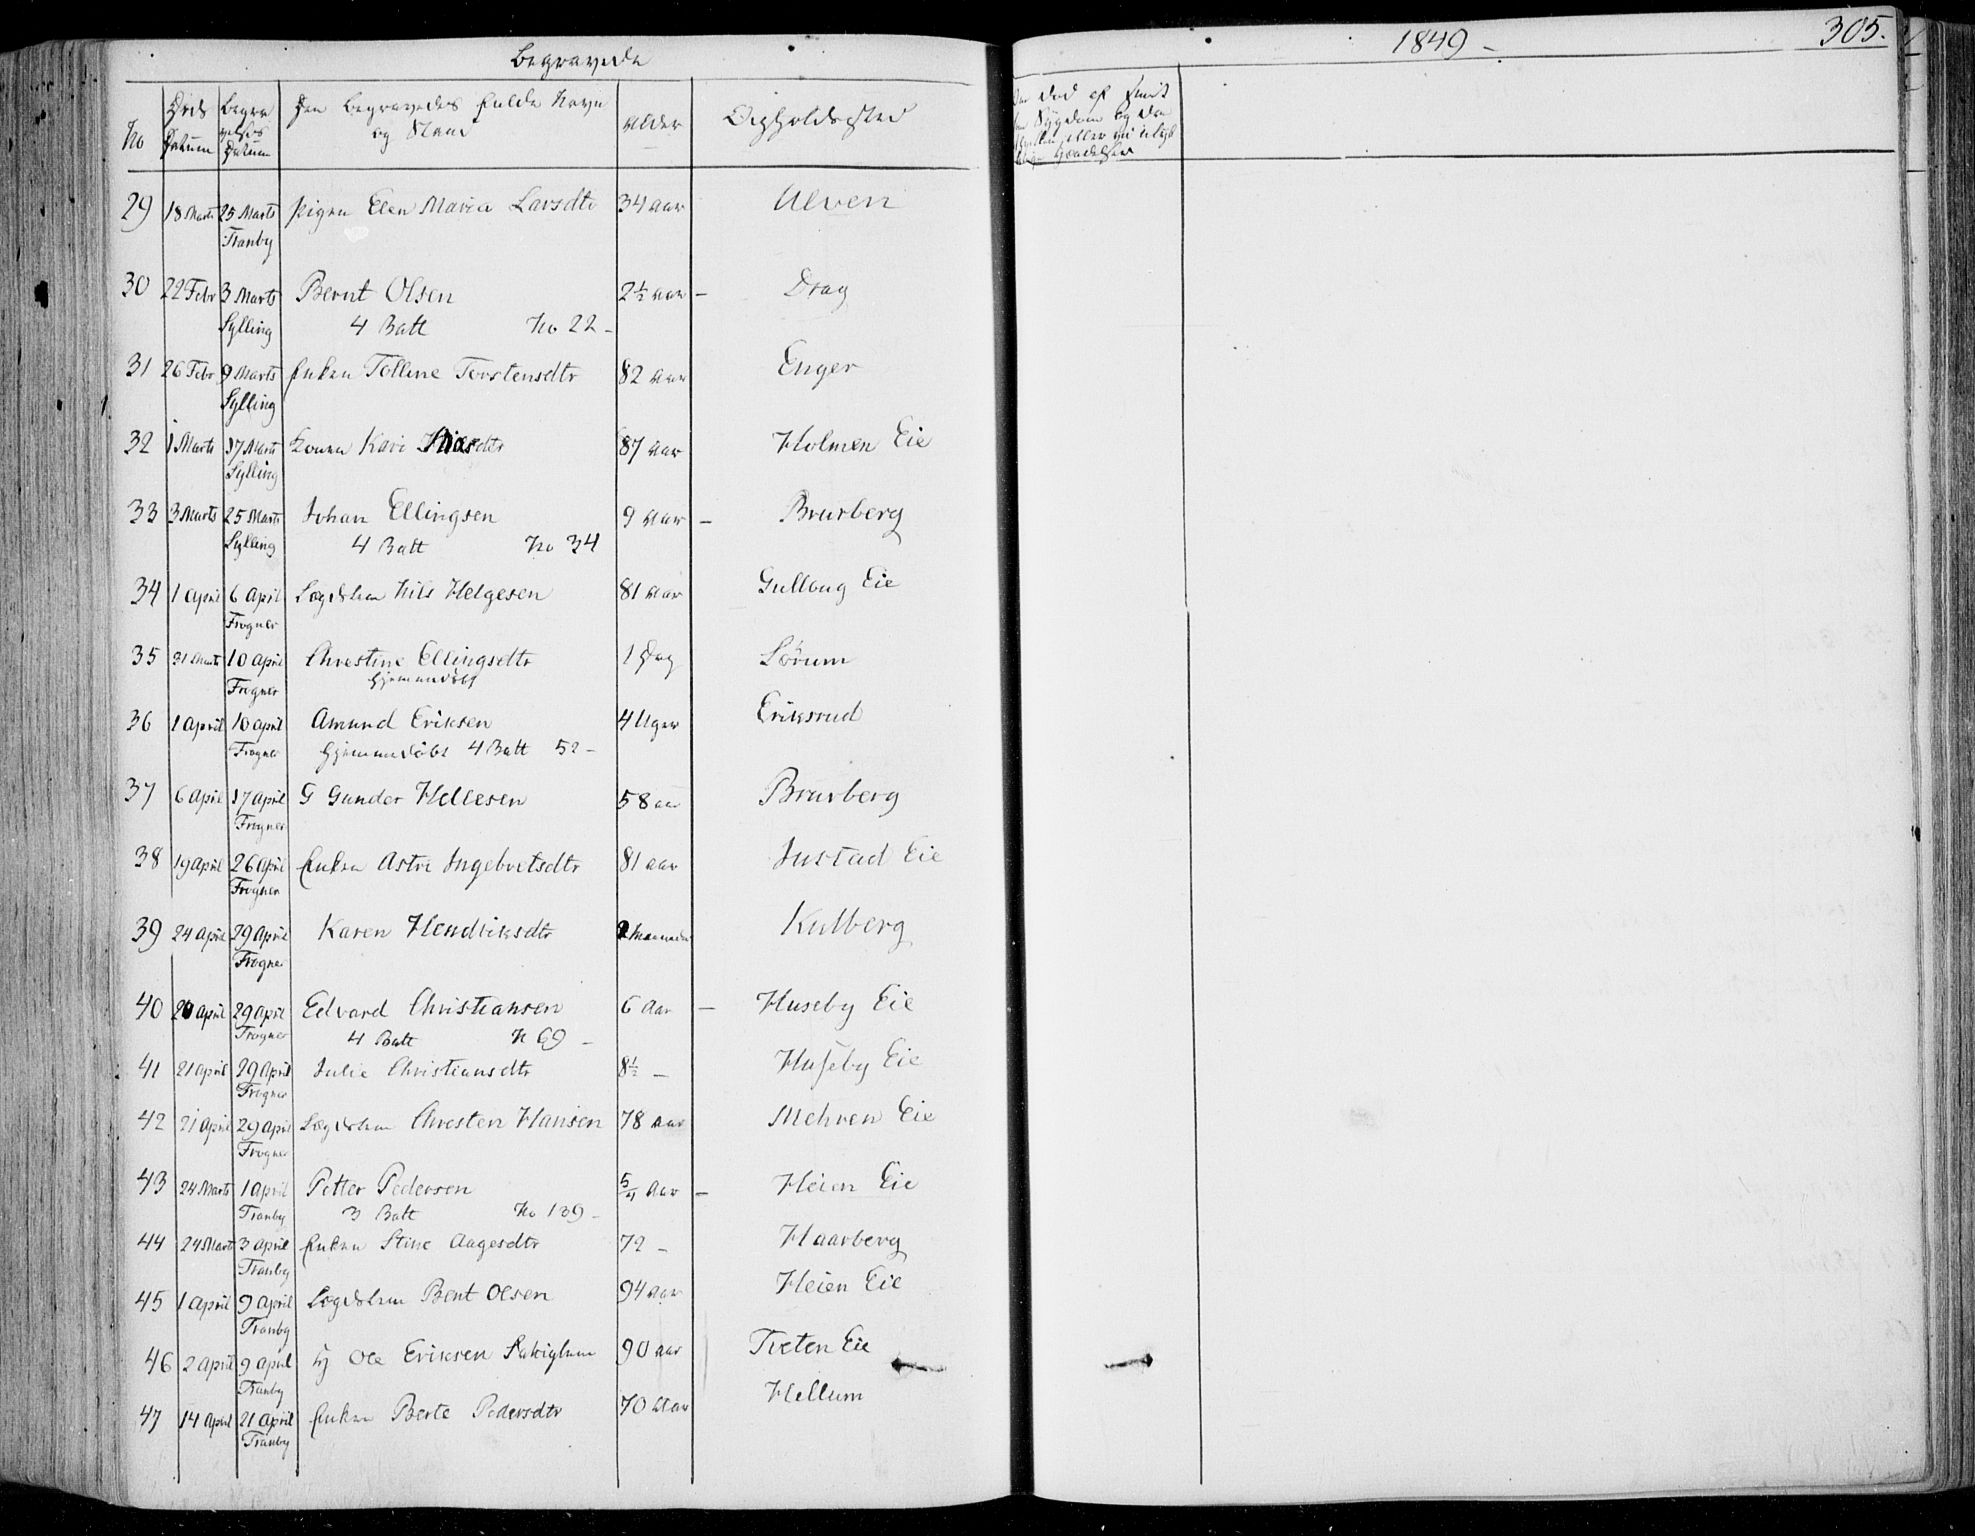 Begravede
1849 -
305.
No
Døds Datum
Begravelses Datum
Den Begravedes fulde Navn og Stand
Alder
Opholdssted
29 18 Marts 25 Marts Pigen Elen Maria Larsdtr 34 Aar Ulven
Tranby
30 22 Febr 3 Marts Bernt Olsen 2½ Aar - Drag
Sylling 4 Batt No 22 -
31 26 Febr 9 Marts Enken Tolline Torstensdtr 82 Aar Enger
Sylling
32 1 Marts 17 Marts Konen Kari 87 Aar Holmen Eie
Sylling
33 3 Marts 25 Marts Johan Ellingsen 9 Aar - Brurberg
Sylling 4 Batt No 34
34 1 April 6 April Lægdslem Nils Helgesen 81 Aar Gullaug Eie
Frogner
35 31 Marts 10 April Christine Ellingsdtr 1 Dag Sørum
Frogner hjemmedøbt
36 1 April 10 April Amund Eriksen 4 Uger Eriksrud
Frogner hjemmedøbt 4 Batt 52 -
37 6 April 17 April G Gunder Hellesen 58 Aar Brurberg
Frogner
38 19 April 26 April Enken Astri Ingebretsdtr 81 Aar Justad Eie
Frogner
39 24 April 29 April Karen Hendriksdtr 2 Maaneder Kulberg
Frogner
40 20 April 29 April Edvard Christiansen 6 Aar - Huseby Eie
Frogner 4 Batt N 69 -
41 21 April 29 April Julie Christiansdtr 8½ - Huseby Eie
Frogner
42 21 April 29 April Lægdslem Christen Hansen 78 Aar Mehren Eie
Frogner
43 24 Marts 1 April Petter Pedersen 5/4 Aar - Heien Eie
Tranby 3 Batt No 139 -
44 24 Marts 3 April Enken Stine Aagesdtr 72 - Haarberg
Tranby
45 1 April 9 April Lægdslem Bent Olsen 94 Aar Heien Eie
Tranby
46 2 April 9 April Ole Eriksen 90 Aar Tveten Eie
Tranby
47 14 April 21 April Enken Berte Pedersdtr 70 Aar Hellum
Tranby